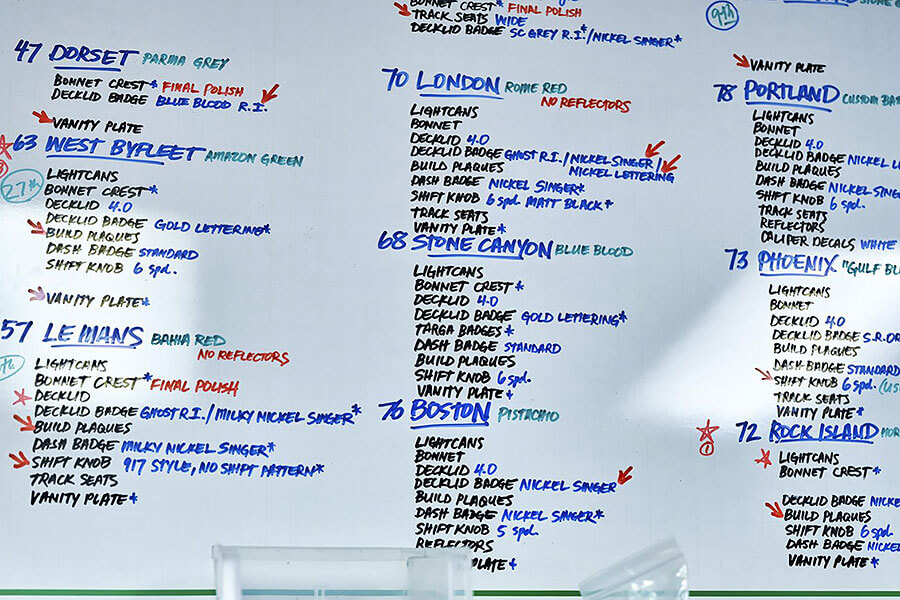 47 DORSET PARMA GREY
BONNET CREST* FINAL POLISH
DECKLID BADGE BLUE BLOOD R.I.
VANITY PLATE
63 WEST BYFLEET AMAZON GREEN
27th
LIGHTCANS
BONNET CREST*
DECKLID 4.0
DECKLID BADGE GOLD LETTERING*
BUILD PLAQUES
DASH BADGE STANDARD
SHIFT KNOB 6 spd.
VANITY PLATE*
57 LE MANS BAHIA RED
NO REFLECTORS
LIGHTCANS
BONNET CREST* FINAL POLISH
DECKLID
DECKLID BADGE GHOST R.I./MILKY NICKEL SINGER*
BUILD PLAQUES
DASH BADGE MILKY NICKEL SINGER*
SHIFT KNOB 917 STYLE, NO SHIFT PATTERN*
TRACK SEATS
VANITY PLATE*
BONNET CREST* FINAL POLISH
TRACK SEATS WIDE
DECKLID BADGE SC GREY R.I.*/NICKEL SINGER*
70 LONDON ROME RED
NO REFLECTORS
LIGHTCANS
BONNET
DECKLID 4.0
DECKLID BADGE GHOST R.I./NICKEL SINGER/
NICKEL LETTERING
BUILD PLAQUES
DASH BADGE NICKEL SINGER*
SHIFT KNOB 6 spd. MATT BLACK*
TRACK SEATS
VANITY PLATE*
68 STONE CANYON BLUE BLOOD
LIGHTCANS
BONNET CREST*
DECKLID 4.0
DECKLID BADGE GOLD LETTERING*
TARGA BADGES*
DASH BADGE STANDARD
BUILD PLAQUES
SHIFT KNOB 6 spd.
VANITY PLATE*
76 BOSTON PISTACHIO
LIGHTCANS
BONNET
DECKLID 4.0
DECKLID BADGE NICKEL SINGER
BUILD PLAQUES
DASH BADGE NICKEL SINGER*
SHIFT KNOB 5 spd.
REFLECTORS
PLATE*
9th
VANITY PLATE
78 PORTLAND CUSTOM
LIGHTCANS
BONNET
DECKLID 4.0
DECKLID BADGE NICKEL
BUILD PLAQUES
DASH BADGE NICKEL
SHIFT KNOB 6 spd.
TRACK SEATS
REFLECTORS
CALIPER DECALS WHITE
73 PHOENIX "GULF
LIGHTCANS
BONNET
DECKLID 4.0
DECKLID BADGE
BUILD PLAQUES
DASH BADGE STANDARD
SHIFT KNOB 6 spd.
TRACK SEATS
VANITY PLATE*
1
72 ROCK ISLAND
LIGHTCANS
BONNET CREST*
DECKLID BADGE
BUILD PLAQUES
SHIFT KNOB 6 spd.
DASH BADGE
VANITY PLATE*